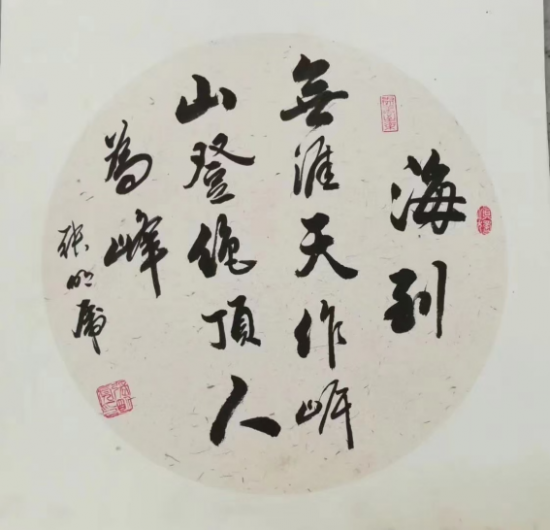 海到
無涯天作岸
山登絶頂人
為峰
張明